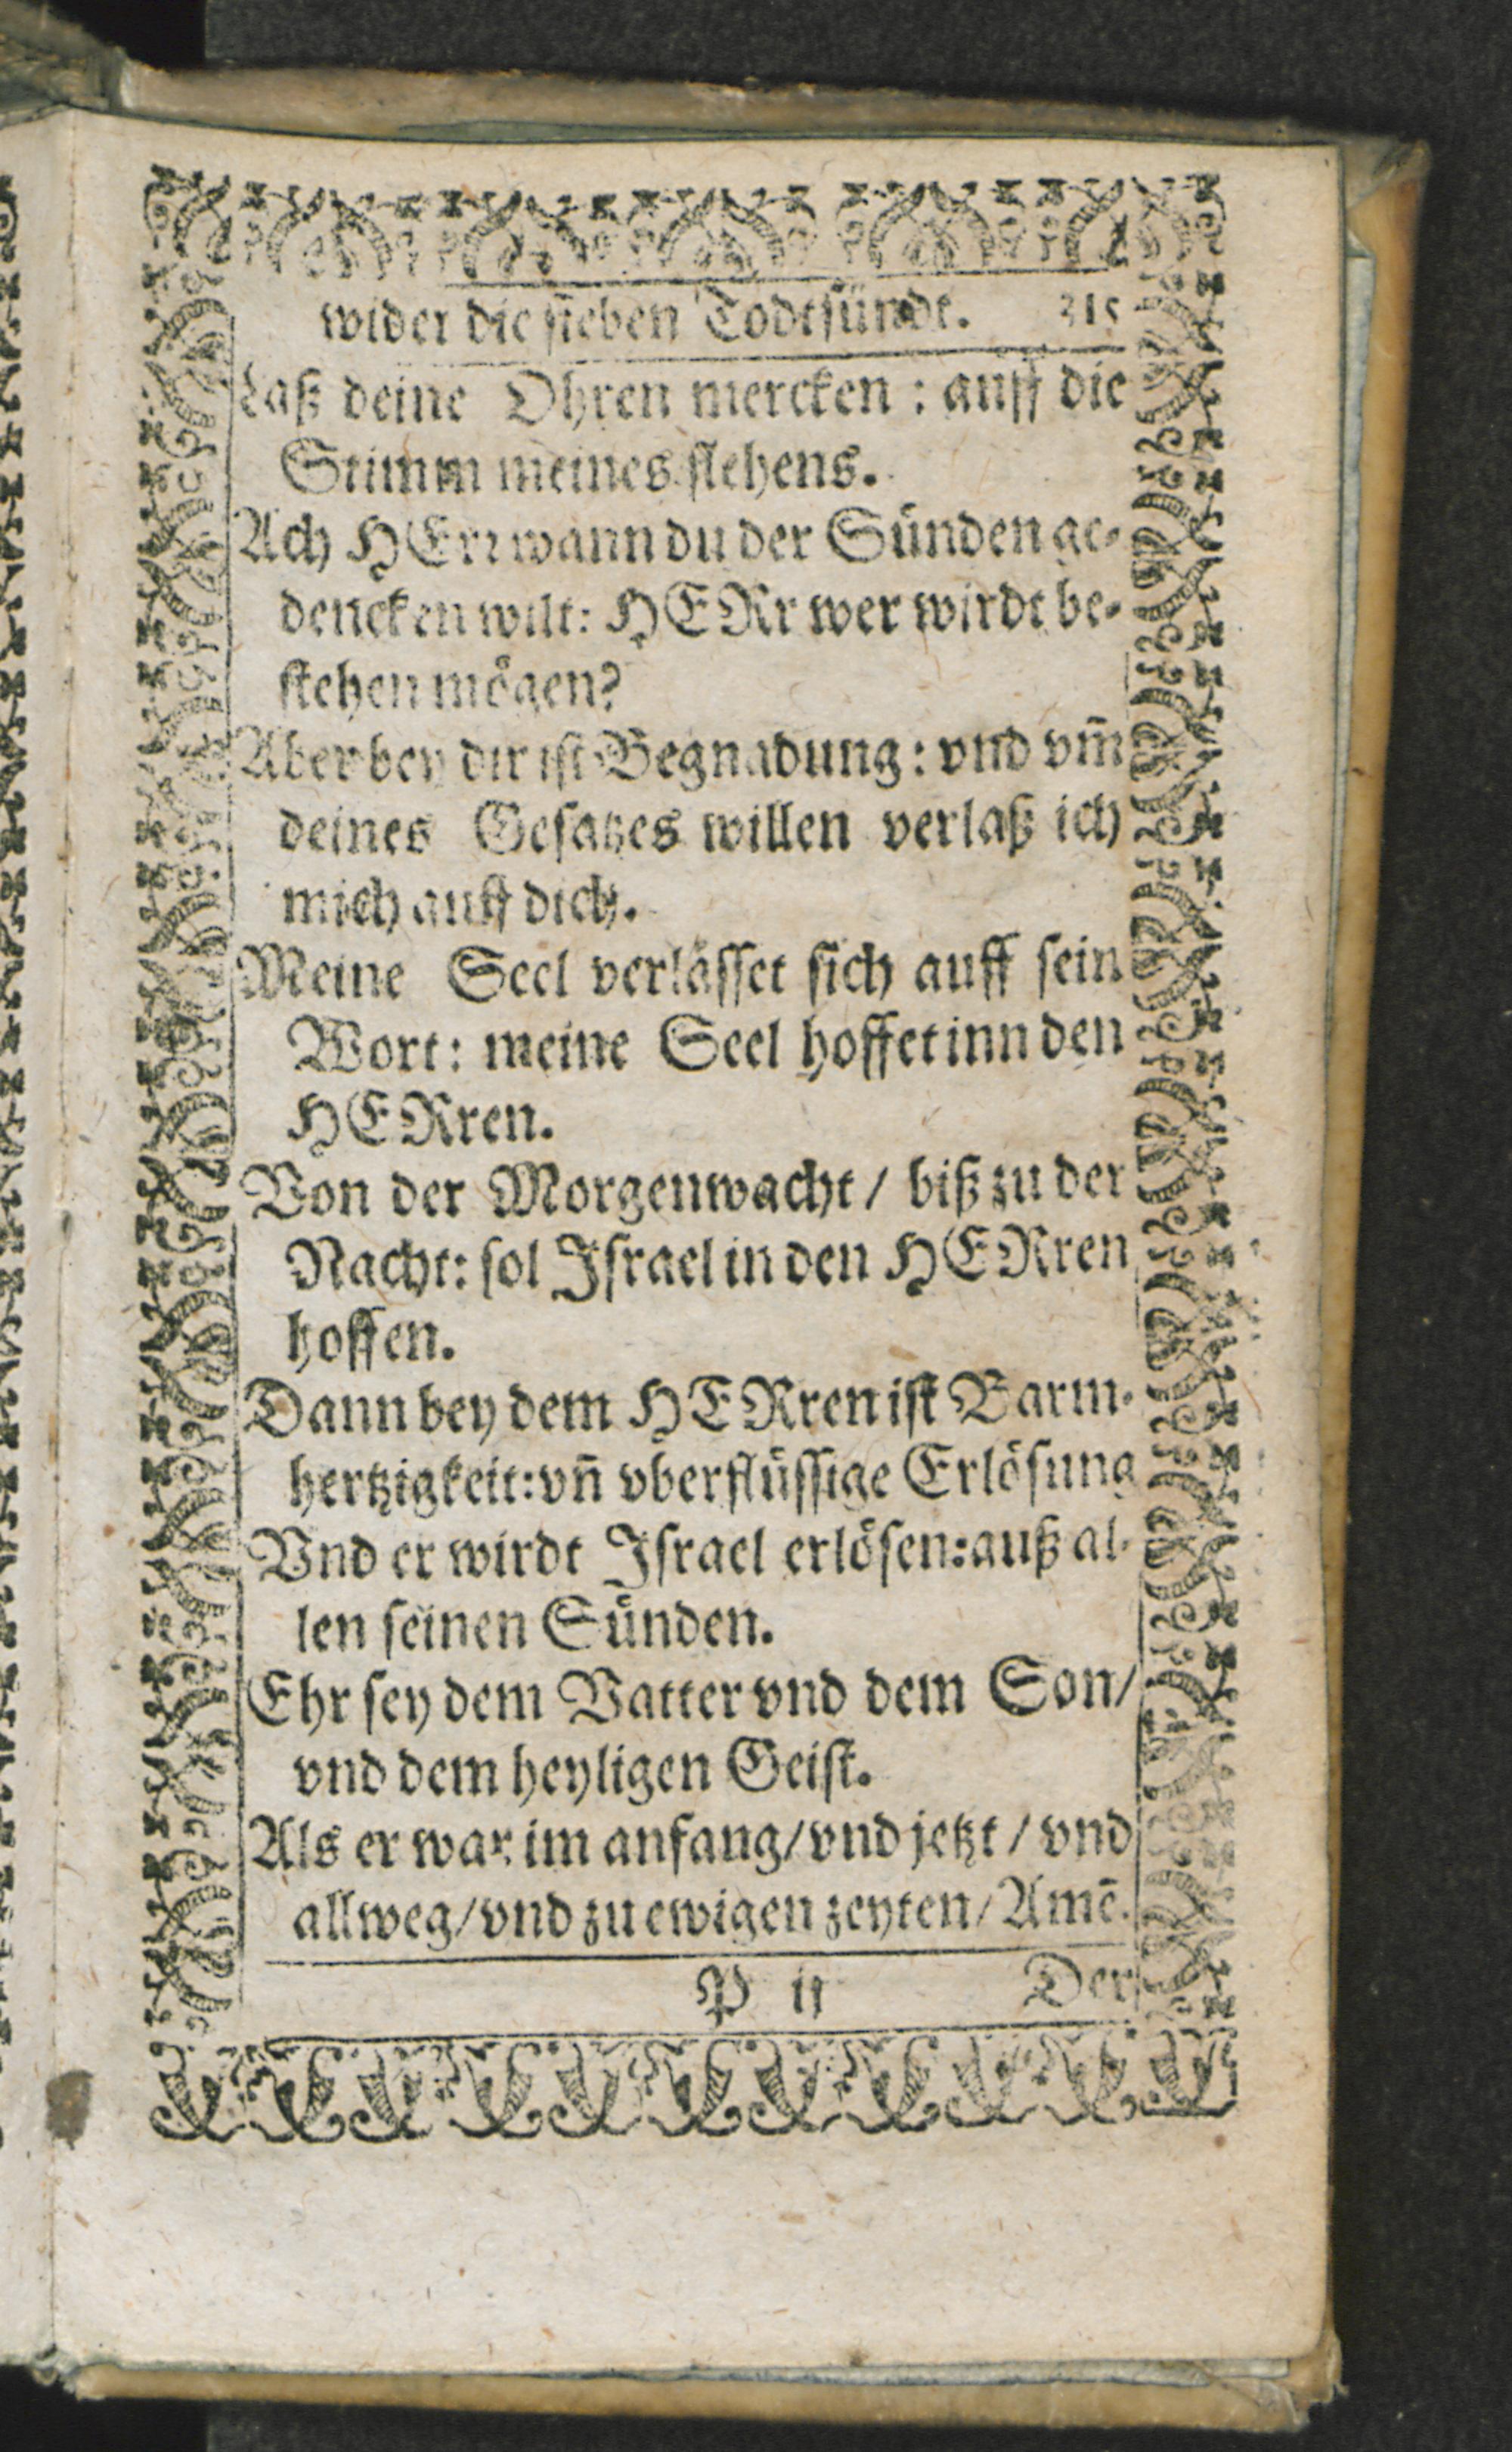 wider die sieben Todtsündt. 315
Laß deine Ohren mercken : auff die
Stimm meines flehens.
Ach HErr wann du der Sünden ge-
dencken wilt: HERr wer wirdt be-
stehen mögen?
Aber bey dir ist Begnadung: vnd vm̃
deines Gesatzes willen verlaß ich
mich auff dich.
Meine Seel verlässet sich auff sein
Wort: meine Seel hoffet inn den
HERren.
Von der Morgenwacht / biß zu der
Nacht: sol Israel in den HERren
hoffen.
Dann bey dem HERren ist Barm-
hertzigkeit: vñ vberflüssige Erlösung
Vnd er wirdt Israel erlösen: auß al-
len seinen Sünden.
Ehr sey dem Vatter vnd dem Son/
vnd dem heyligen Geist.
Als er war im anfang/ vnd jetzt / vnd
allweg/ vnd zu ewigen zeyten/ Amē.
P ij Der